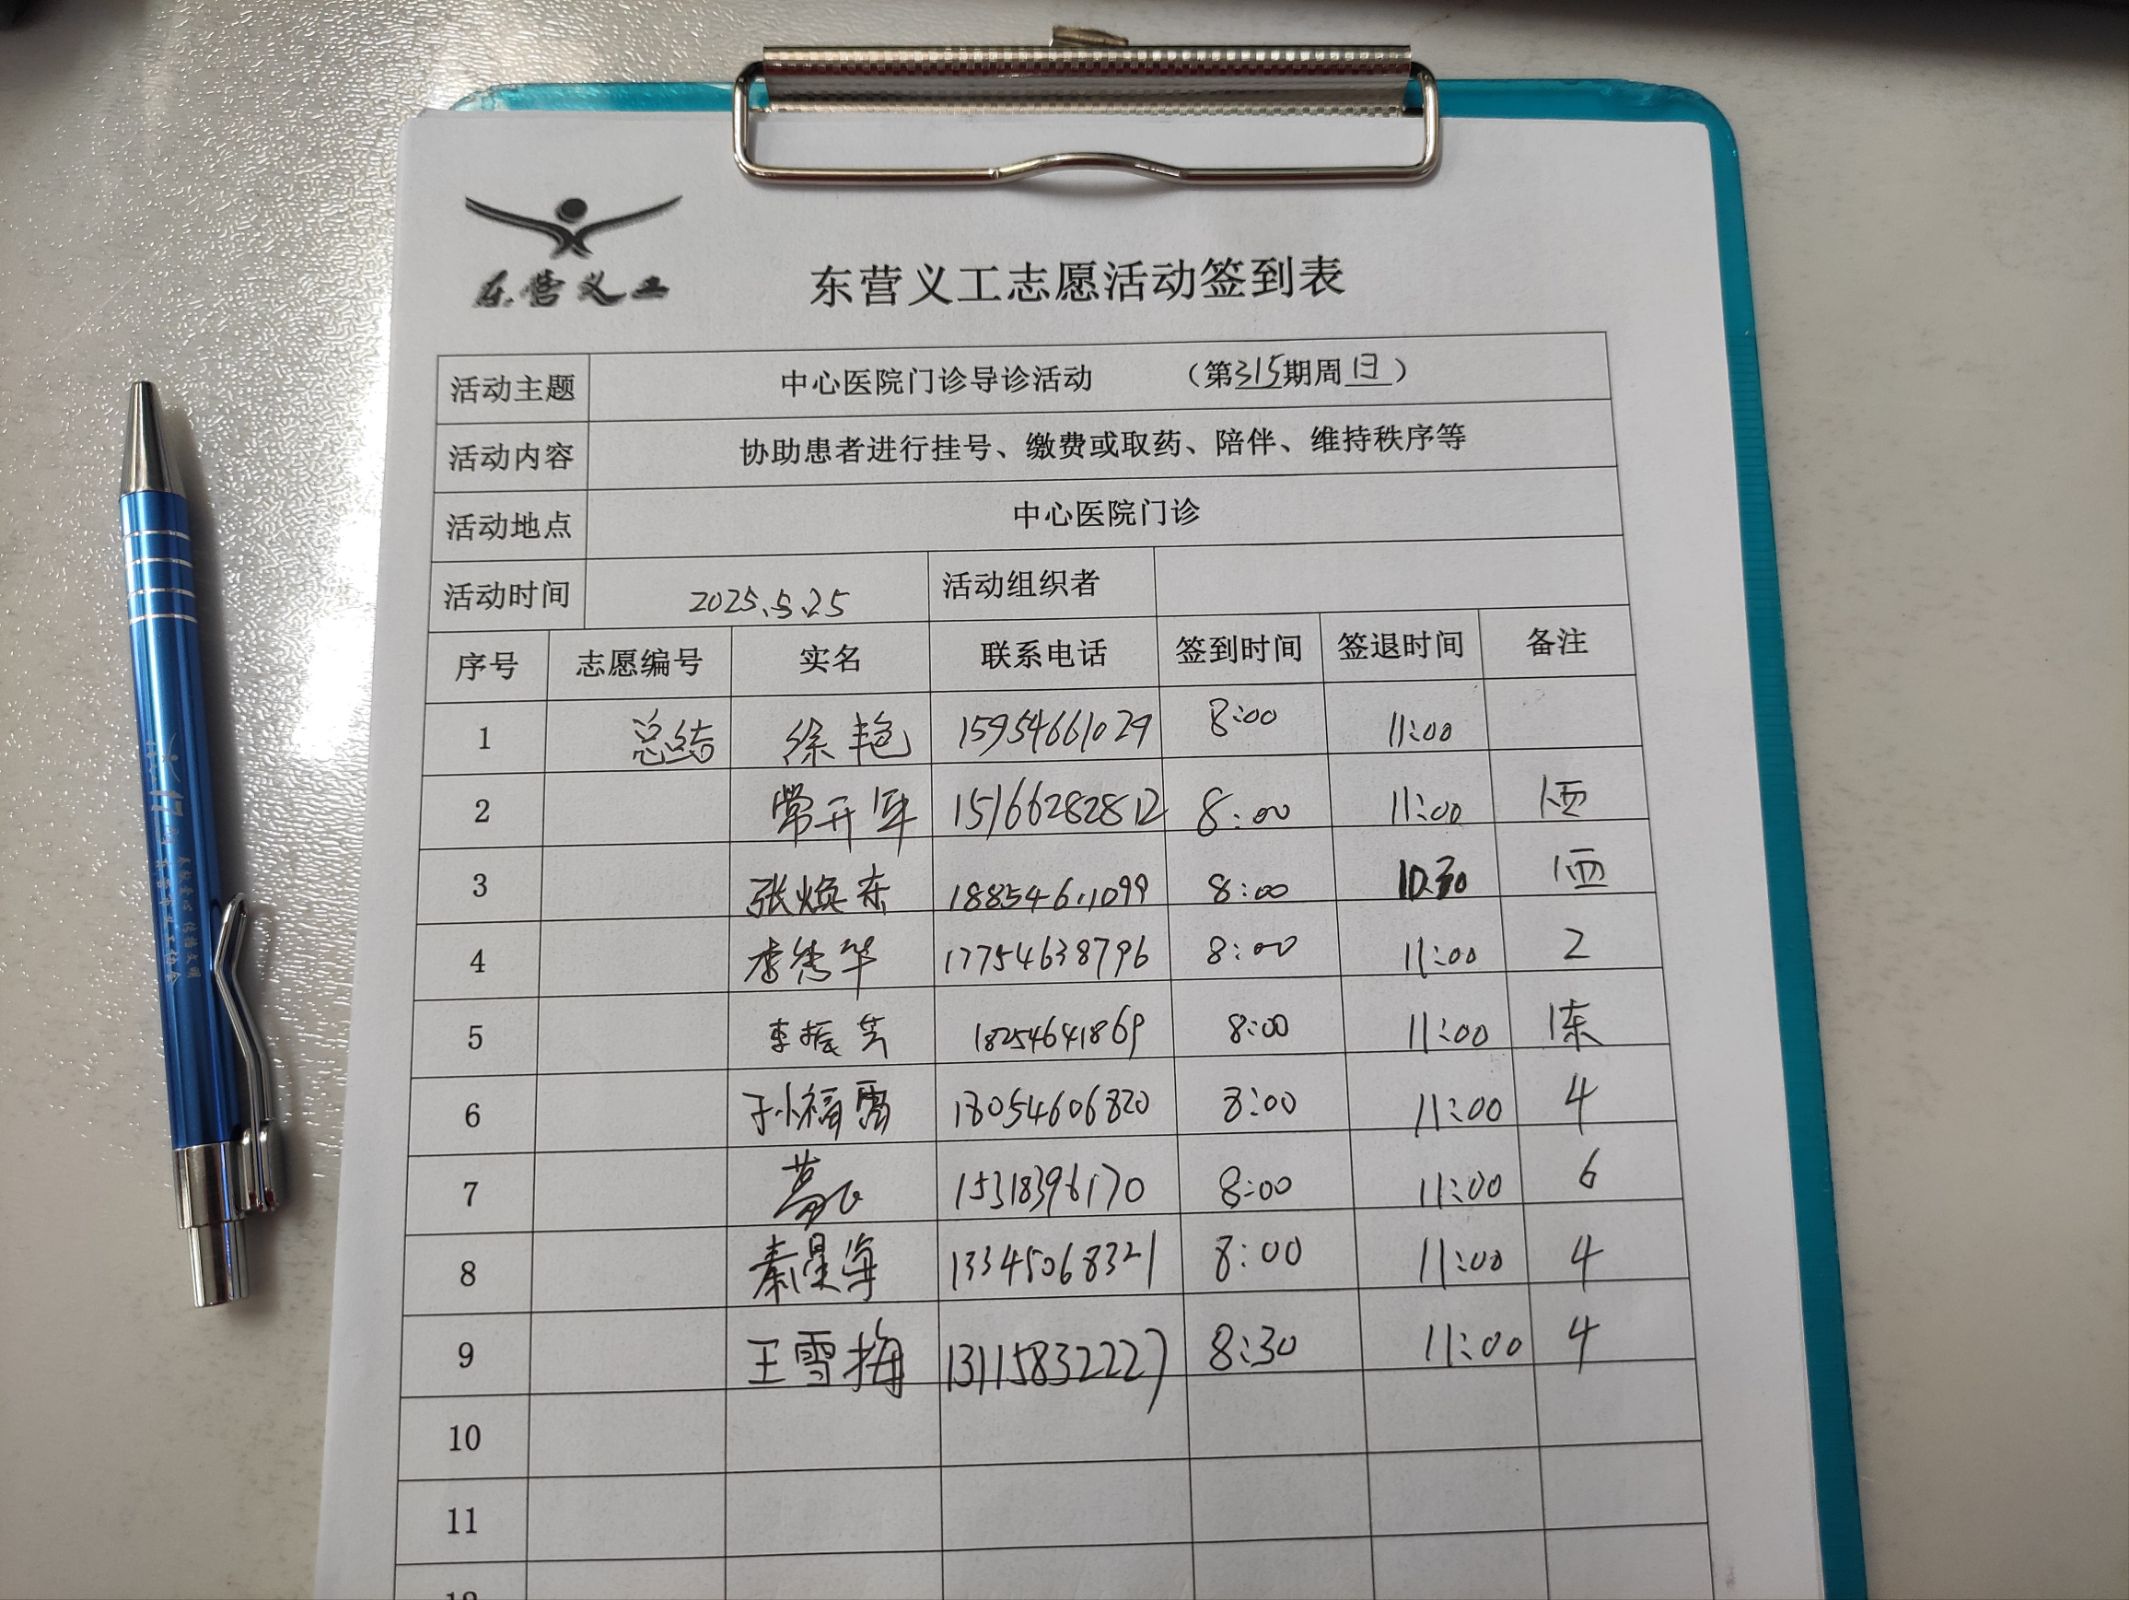 东营义工
东营义工志愿活动签到表
活动主题 中心医院门诊导诊活动 （第315期周日）
活动内容 协助患者进行挂号、缴费或取药、陪伴、维持秩序等
活动地点 中心医院门诊
活动时间 2025.5.25 活动组织者
序号 志愿编号 实名 联系电话 签到时间 签退时间 备注
1 总结 徐艳 15954661029 8:00 11:00
2 常开军 15166282812 8:00 11:00 1西
3 张焕东 18854611099 8:00 10:30 1西
4 李秀华 17754638796 8:00 11:00 2
5 李振芳 18254641869 8:00 11:00 1东
6 孙福 18054606820 8:00 11:00 4
7 15318396170 8:00 11:00 6
8 秦星海 13345068321 8:00 11:00 4
9 王雪梅 13115832227 8:30 11:00 4
10
11